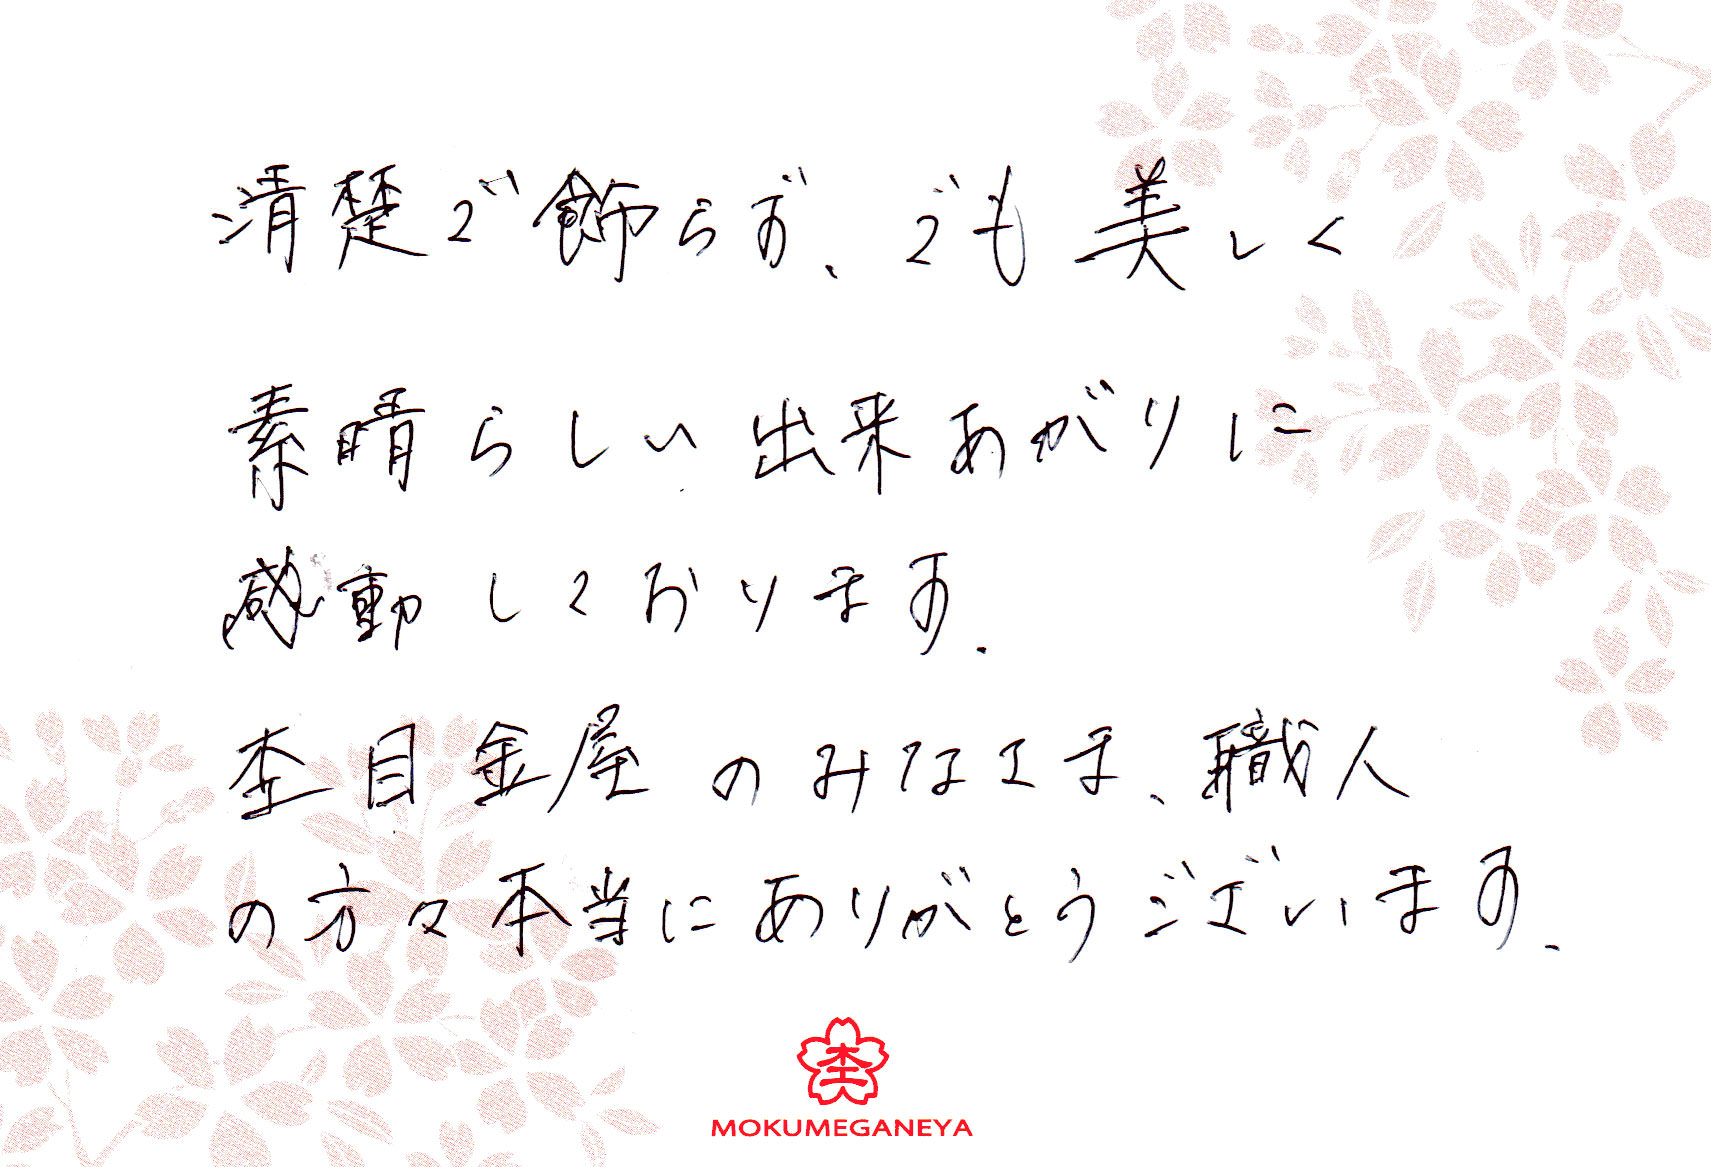 清楚で飾らず、でも美しく
素晴らしい出来あがりに
感動しております。
杢目金屋のみなさま、職人
の方々本当にありがとうございます。
杢
MOKUMEGANEYA